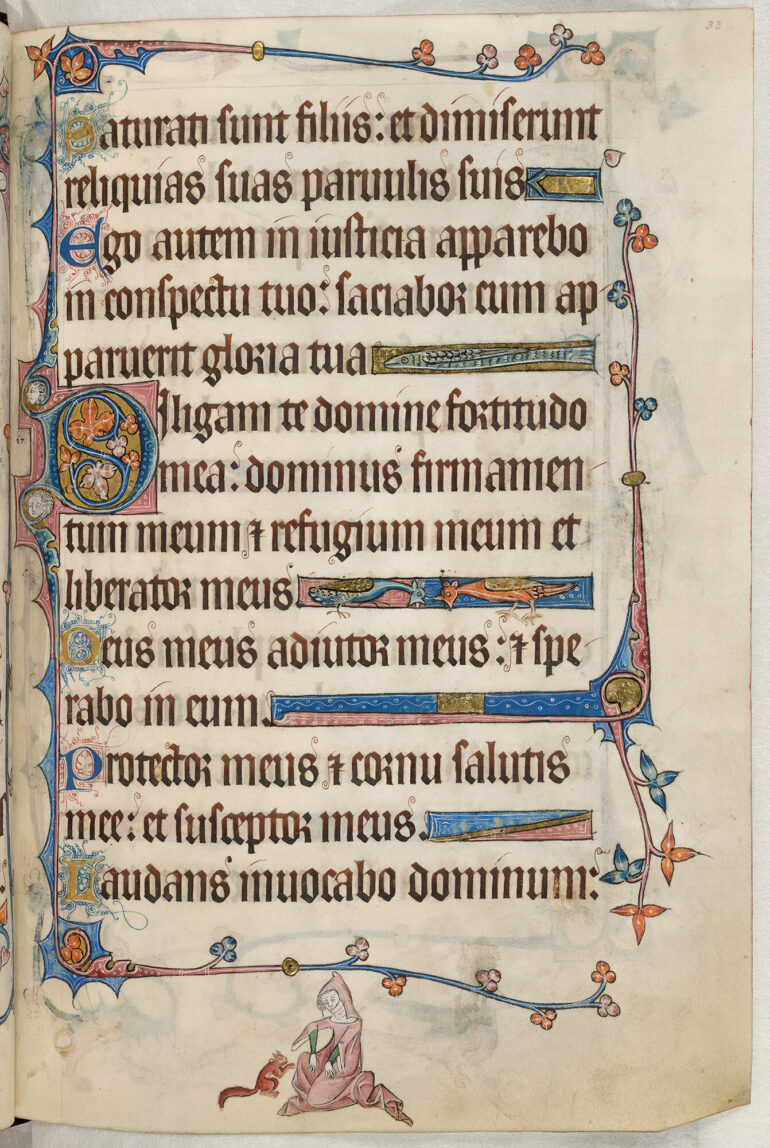 33
Saturati sunt filiis: et dimiserunt
reliquias suas paruulis suis
Ego autem in iusticia apparebo
in conspectu tuo: saciabor cum ap
paruerit gloria tua
Diligam te domine fortitudo
mea: dominus firmamen
tum meum ⁊ refugium meum et
liberator meus.
Deus meus adiutor meus: ⁊ spe
rabo in eum.
Protector meus ⁊ cornu salutis
mee: et susceptor meus.
Laudans inuocabo dominum: